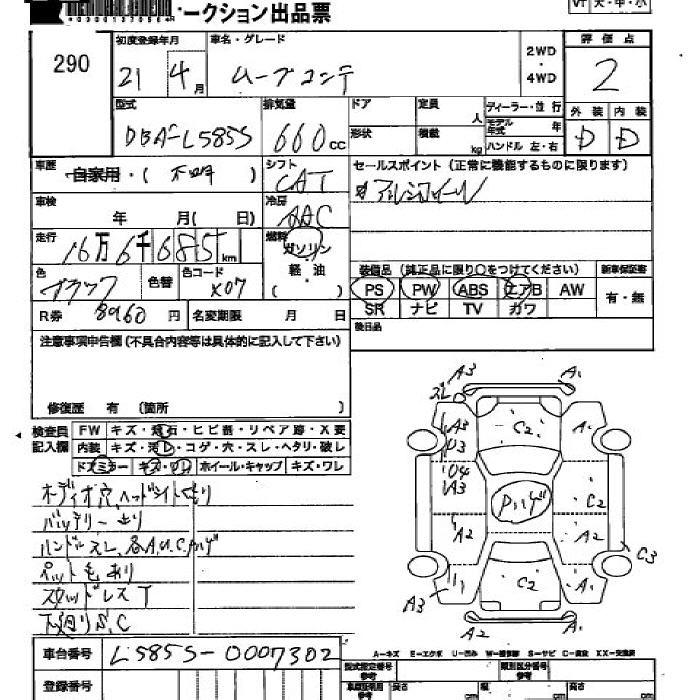 ークション出品票
VT 大・中・小
290
初度登録年月 車名・グレード
21 4月 ムーブコンテ
2WD
・
4WD
評価点
2
型式 排気量 ドア 定員 人 ディーラー・並行 外装 内装
DBA-L585S 660cc 形状 積載 kg モデル年式 年 D D
ハンドル 左・右
車歴 自家用・( 不明 ) シフト CAT
セールスポイント(正常に機能するものに限ります)
アルミホイール
車検 年 月( 日) 冷房 AAC
走行 16万6千685km 燃料 ガソリン
軽・油
( )
色 ブラック 色替 色コード X07
装備品(純正品に限り○をつけてください) 新車保証書
PS PW ABS エアB AW 有・無
SR ナビ TV ガワ
R券 8960円 名変期限 月 日
後日品
注意事項申告欄(不具合内容等は具体的に記入して下さい)
修復歴 有(箇所 )
検査員記入欄 FW キズ・飛石・ヒビ割・リペア跡・X要
内装 キズ・汚レ・コゲ・穴・スレ・ヘタリ・破レ
ドアミラー キズ・ワレ ホイール・キャップ キズ・ワレ
オーディオ穴、ヘッドライトくもり
バッテリー上り
ハンドルスレ、各A,U,C,ハゲ
ペット毛あり
スタッドレスT
下廻りS,C
A3 A1
スレ
A3 C2 A1
U3
U4
A3 Pハゲ C2
A2 A2
C3
C2 A1
A3
A2 A1
車台番号 L585S-0007302
A-キズ E-エクボ U-凹み W-補修跡 S-サビ C-腐食 XX-交換済
登録番号
型式指定番号 参考 類別区分番号 参考
長さ cm 幅 cm 高さ